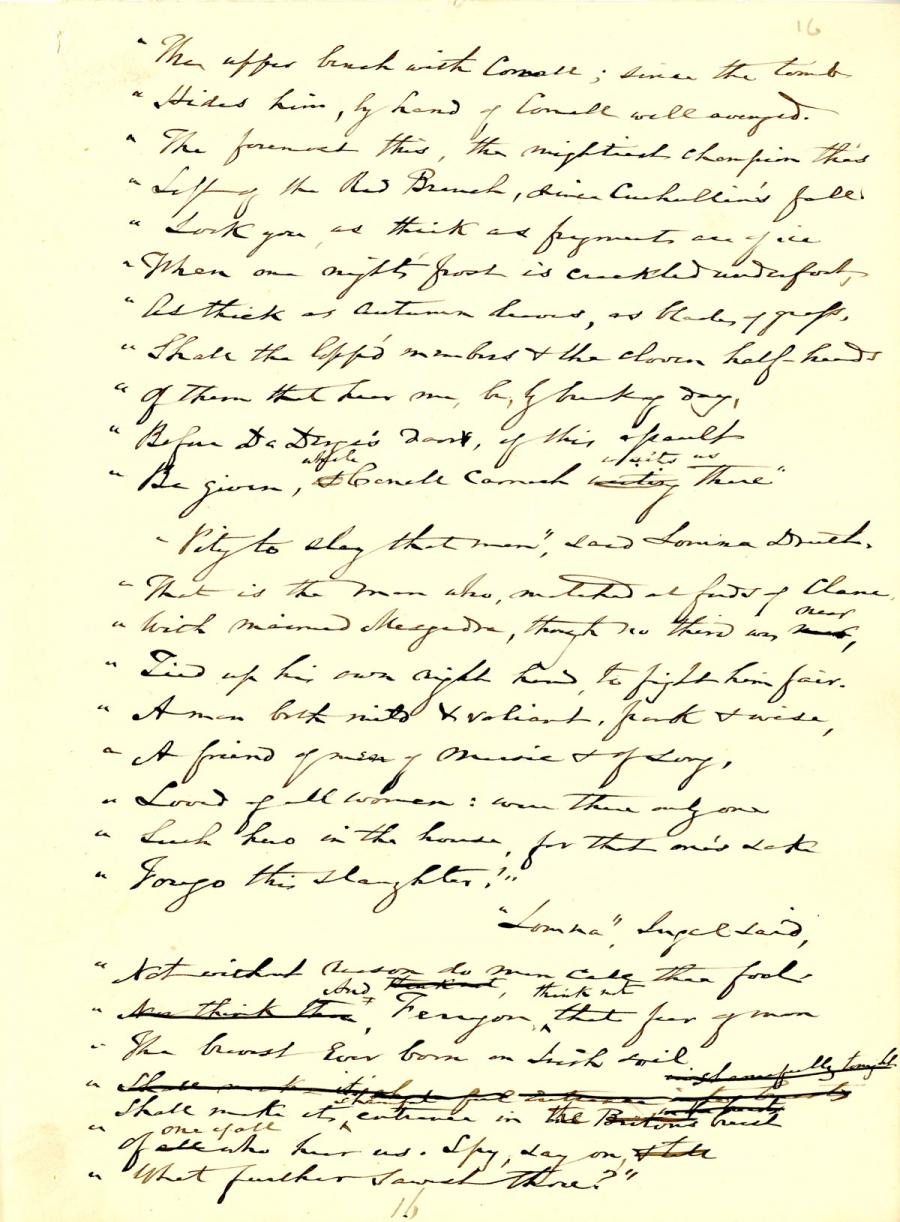 16
"The upper bench with Conall; since the tomb
"Hides him, by hand of Conall well avenged.
"The foremost this, the mightiest champion this
"Left of the Red Branch, since Cuchullin's fall.
"Look you, as thick as fragments are of ice
"When one night's frost is crackled underfoot,
"As thick as autumn leaves, as blades of grass,
"Shall the lopp'd members & the cloven half-heads
"Of them that hear me, be, by break of day,
"Before Da Derga's doors, if this assault
while waits us
"Be given, & Conall Carnach waiting there"
"Pity to slay that man", said Lomna Druth.
"That is the man who, matched at fords of Clane,
near
"With maimed Mesgedra, though no third was
"Tied up his own right hand, to fight him fair.
"A man both mild & valiant, frank & wise,
"A friend of men of music & of song,
"Loved of all women: were there only one
"Such hero in the house, for that one's sake
"Forego this slaughter!"
"Lomna", Ingcel said,
"Not without reason do men call thee fool.
And think not
"Nor think thou, Ferragon, that fear of man
"The bravest Ever born on Irish soil
shamefully tonight
"Shall make its
shameful
Shall make its entrance in the Britons breast
one of all
"Of all who hear us. Spy, say on,
"What further sawest there?"
16